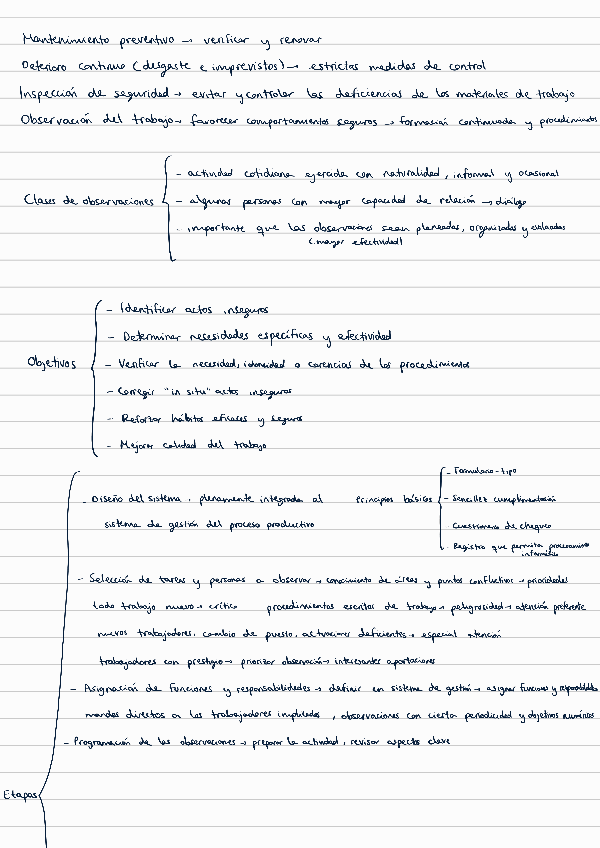 Mantenimiento preventivo → verificar y renovar
Deterioro continuo (desgaste e imprevistos) → estrictas medidas de control
Inspección de seguridad → evitar y controlar las deficiencias de los materiales de trabajo
Observación del trabajo → favorecer comportamientos seguros → formación continuada y procedimientos
Clases de observaciones
- actividad cotidiana ejercida con naturalidad, informal y ocasional
- algunas personas con mayor capacidad de relación → diálogo
- importante que las observaciones sean planeadas, organizadas y evaluadas
(mayor efectividad)
Objetivos
- Identificar actos inseguros
- Determinar necesidades específicas y efectividad
- Verificar la necesidad, idoneidad o carencias de los procedimientos
- Corregir "in situ" actos inseguros
- Reforzar hábitos eficaces y seguros
- Mejorar calidad del trabajo
Etapas
- Diseño del sistema, plenamente integrada al
sistema de gestión del proceso productivo
Principios básicos
- Formulario-tipo
- Sencillez cumplimentación
- Cuestionario de chequeo
- Registro que permita procesamiento
informático
- Selección de tareas y personas a observar → conocimiento de áreas y puntos conflictivos → prioridades
todo trabajo nuevo → crítico procedimientos escritos de trabajo → peligrosidad → atención preferente
nuevos trabajadores, cambio de puesto, actuaciones deficientes → especial atención
trabajadores con prestigio → priorizar observación → interesantes aportaciones
- Asignación de funciones y responsabilidades → definir en sistema de gestión → asignar funciones y responsabilidades
mandos directos a los trabajadores implicados, observaciones con cierta periodicidad y objetivos numéricos
- Programación de las observaciones → preparar la actividad, revisar aspectos clave